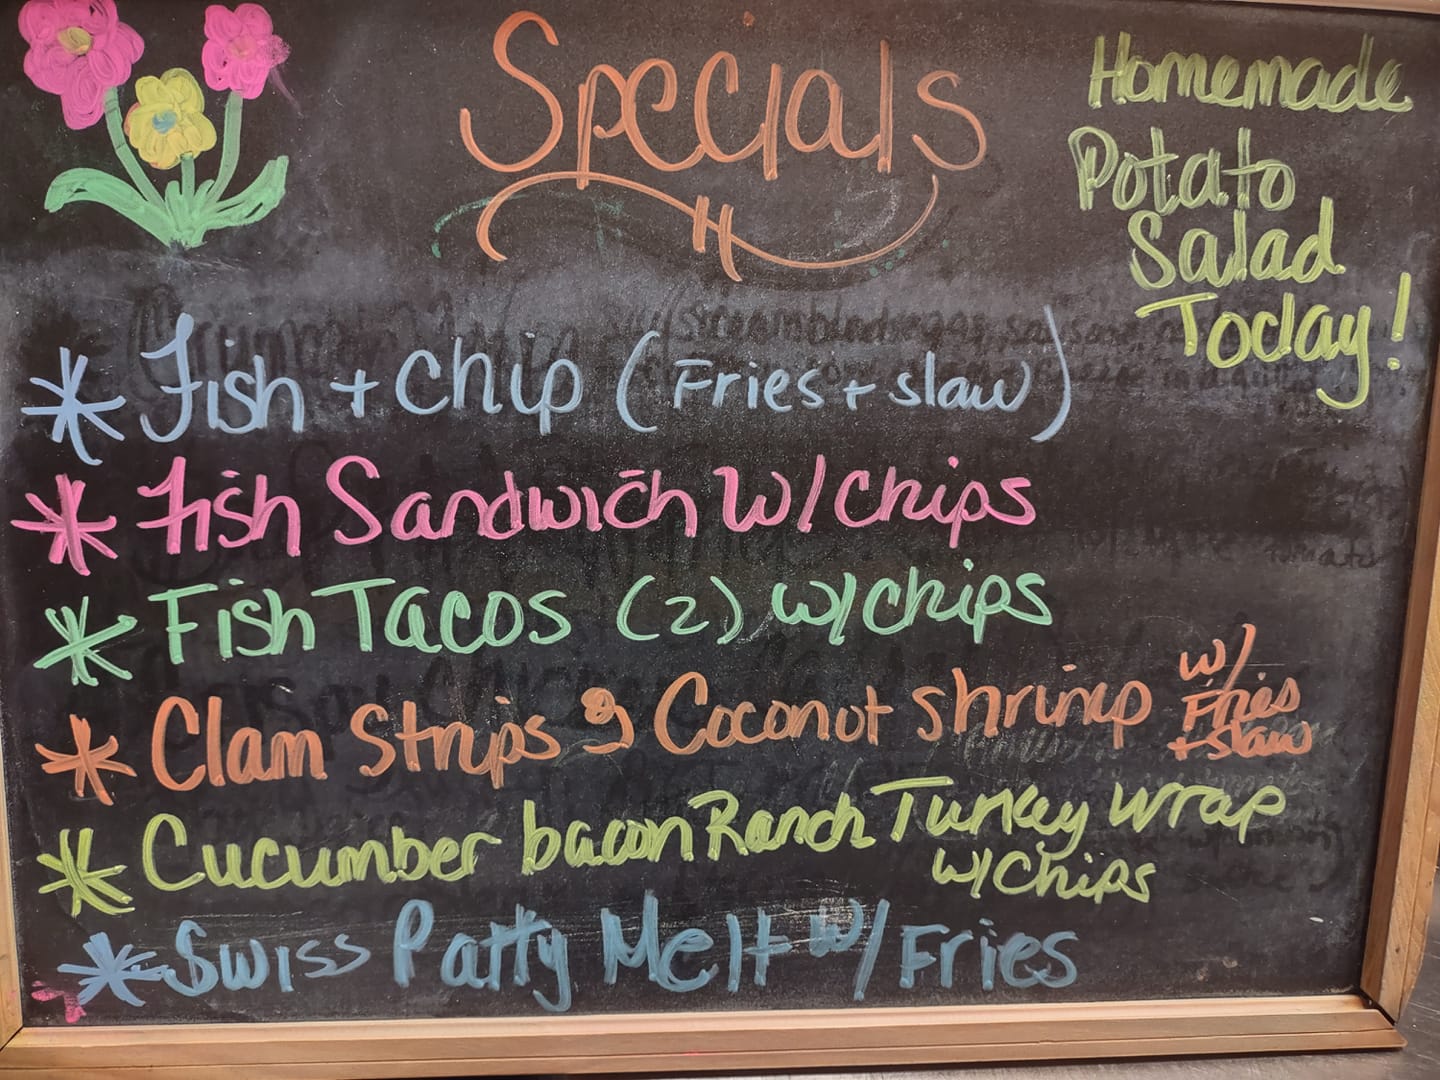 Specials
Homemade
Potato
Salad
Today!
* Fish + Chip (Fries + slaw)
* Fish Sandwich w/chips
* Fish Tacos (2) w/chips
* Clam Strips & Coconut shrimp w/
Fries
+ slaw
* Cucumber bacon Ranch Turkey wrap
w/Chips
* Swiss Patty Melt w/ Fries